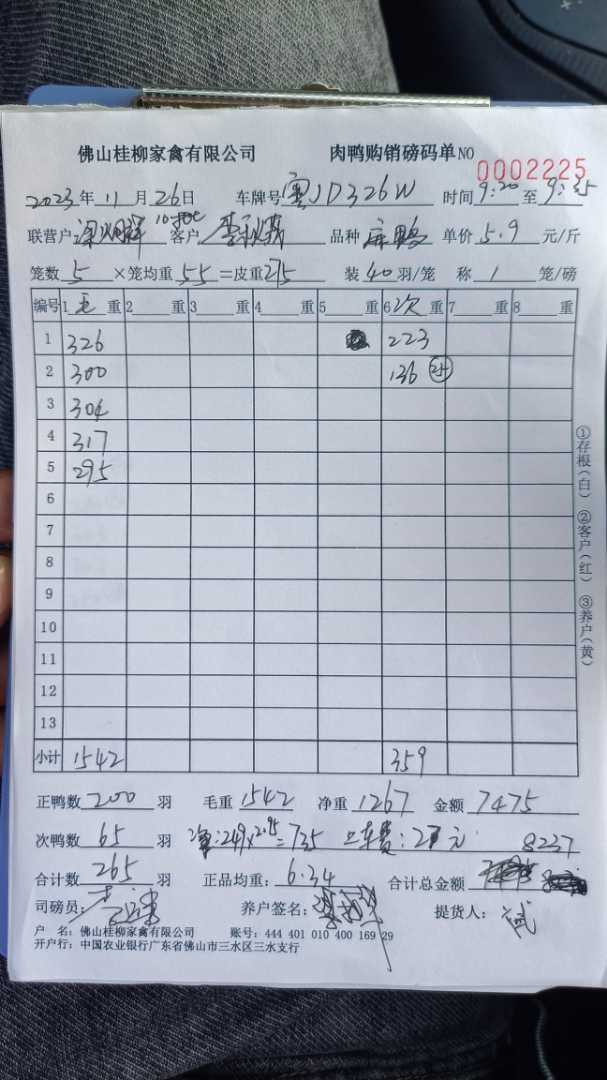 佛山桂柳家禽有限公司 肉鸭购销磅码单 NO 0002225
2023年 11月 26日 车牌号 粤JD326W 时间 9:20 至 9:35
联营户 客户 品种 麻鸭 单价 5.9 元/斤
笼数 5 ×笼均重 55 =皮重 275 装 40 羽/笼 称 1 笼/磅
编号 1 毛 重 2 重 3 重 4 重 5 重 6 次 重 7 重 8 重
1 326 223
2 300 136 25
3 304
4 317
5 295
6
7
8
9
10
11
12
13
小计 1542 359
①存根(白) ②客户(红) ③养户(黄)
正鸭数 200 羽 毛重 1542 净重 1267 金额 7475
次鸭数 65 羽 净:249×2.95=735 上车费:27元 8237
合计数 265 羽 正品均重: 6.34 合计总金额
司磅员: 养户签名: 提货人:
户 名: 佛山桂柳家禽有限公司 账号: 444 401 010 400 169 29
开户行: 中国农业银行广东省佛山市三水区三水支行